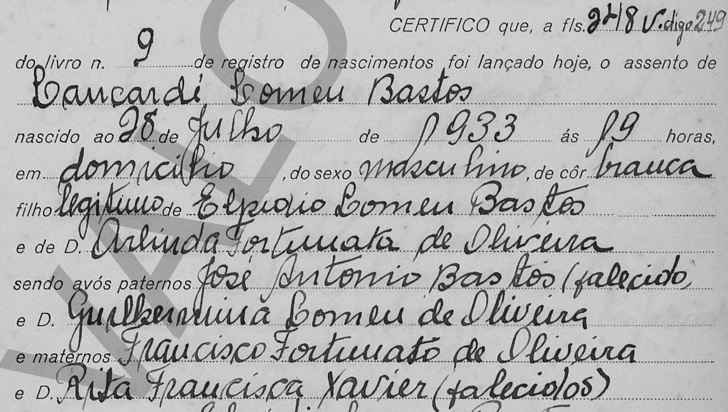 CERTIFICO que, a fls. 248 v. digo 249
do livro n. 9 de registro de nascimentos foi lançado hoje, o assento de
Lancardi Lomeu Bastos
nascido ao 28 de Julho de 1933 ás 19 horas,
em domicilio, do sexo masculino, de côr branca
filho legitimo de Elpidio Lomeu Bastos
e de D. Arlinda Fortunata de Oliveira
sendo avós paternos José Antonio Bastos (falecido,
e D. Guilhermina Lomeu de Oliveira
e maternos Francisco Fortunato de Oliveira
e D. Rita Francisca Xavier (falecidos)